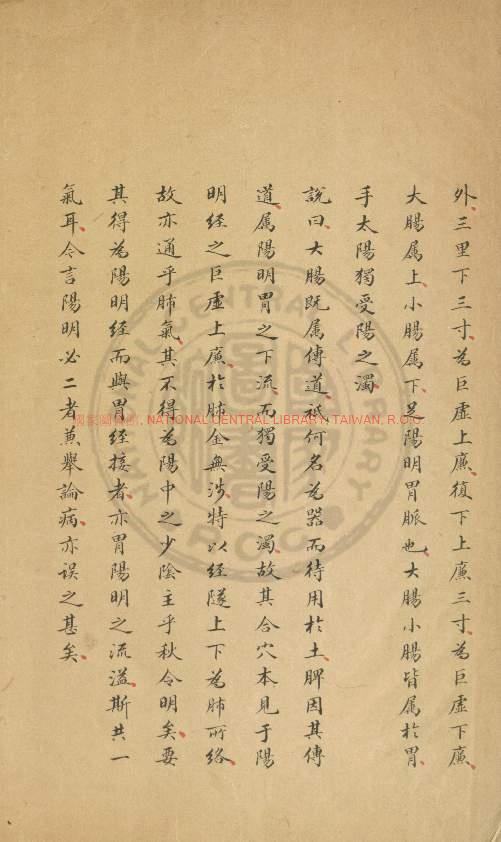 外、三里下三寸、為巨虛上廉、復下上廉三寸、為巨虛下廉、
大腸属上、小腸属下、足陽明胃脈也、大腸小腸皆属於胃、
手太陽獨受陽之濁、
說曰、大腸既属傳道、祗何名為器而待用於土、脾因其傳
道、属陽明胃之下流、而獨受陽之濁、故其合穴本見于陽
明経之巨虛上廉、於肺金無涉、特以経隧上下為肺所絡、
故亦通乎肺氣、其不得為陽中之少陰主乎秋令明矣、要
其得為陽明経而與胃経接者、亦胃陽明之流溢、斯共一
氣耳、今言陽明必二者兼舉論病、亦误之甚矣、
國家圖書館, NATIONAL CENTRAL LIBRARY, TAIWAN, R.O.C.